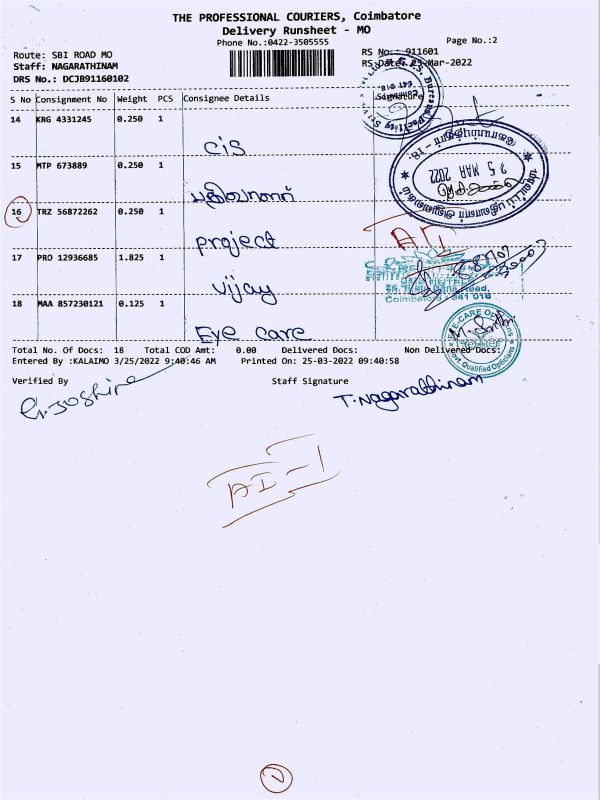 THE PROFESSIONAL COURIERS, Coimbatore
Delivery Runsheet - MO
Phone No.:0422-3505555
Page No.:2
Route: SBI ROAD MO
RS No: 911601
Staff: NAGARATHINAM
RS Date: 25-Mar-2022
DRS No.: DCJB91160102
S No Consignment No Weight PCS Consignee Details Signature
14 KRG 4331245 0.250 1
cis
15 MTP 673889 0.250 1
பதிவாளர்
16 TRZ 56872262 0.250 1
project
17 PRO 12936685 1.825 1
vijay
18 MAA 857230121 0.125 1
Eye care
25 MAR 2022
Coimbatore 641 018
EYE-CARE OPTICIANS
Govt. Qualified Opticians
Total No. Of Docs: 18 Total COD Amt: 0.00 Delivered Docs: Non Delivered Docs:
Entered By :KALAIMO 3/25/2022 9:40:46 AM Printed On: 25-03-2022 09:40:58
Verified By Staff Signature
T. Nagarathinam
AI-1